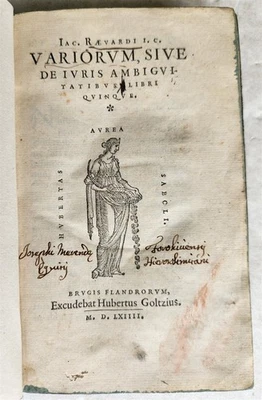 IAC. RÆVARDI I. C.
VARIORVM, SIVE
DE IVRIS AMBIGVI-
TATIBVS, LIBRI
QVINQVE.
*
AVREA
HVBERTAS
SAECLI.
Josephi
BRVGIS FLANDRORVM,
Excudebat Hubertus Goltzius.
M. D. LXIIII.